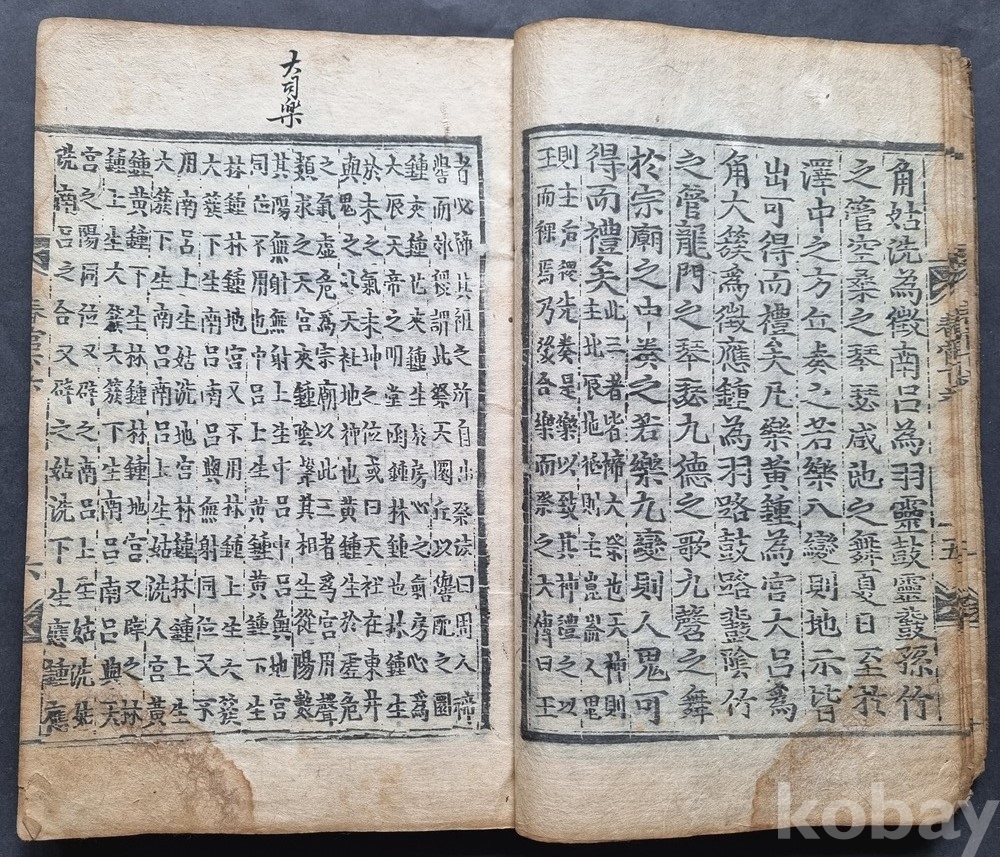 角姑洗為徵南呂為羽靈鼓靈鼗孫竹
之管空桑之琴瑟咸池之舞夏日至於
澤中之方丘奏之若樂八變則地示皆
出可得而禮矣凡樂黃鍾為宮大呂爲
角大簇爲徵應鍾為羽路鼓路鼗陰竹
之管龍門之琴瑟九德之歌九㲈之舞
於宗廟之中奏之若樂九變則人鬼可
得而禮矣
此三者皆禘大祭也天神則
主北辰地祇則主崑崙人鬼
則主后稷先奏是樂以致其神禮之以
玉而祼焉乃後合樂而祭之大傳曰王
大司樂
者必禘其祖之所自出祭法曰周人禘
嚳而郊稷謂此祭天圜丘以嚳配之圜
鍾夾鍾也夾鍾生於房心之氣房心爲
大辰天帝之明堂函鍾林鍾也林鍾生
於未之氣未坤之位或曰天社在東井
輿鬼之外天社地神也黃鍾生於虛危
之氣虛危爲宗廟以此三者爲宮用聲
類求之天宮夾鍾陰聲其相生從陽數
其陽無射無射上生中呂中呂與地宮
同位不用也中呂上生黃鍾黃鍾下生
林鍾林鍾地宮又不用林鍾上生大簇
大簇下生南呂南呂與無射同位又不
用南呂上生姑洗地宮林鍾林鍾上生
大簇大簇下生南呂南呂上生姑洗人宮黃
鍾黃鍾下生林鍾林鍾地宮又辟之林
鍾上生大簇大簇下生南呂南呂與天
宮之陽同位又辟之南呂上生姑洗姑
洗南呂之合又辟之姑洗下生應鍾應
kobay